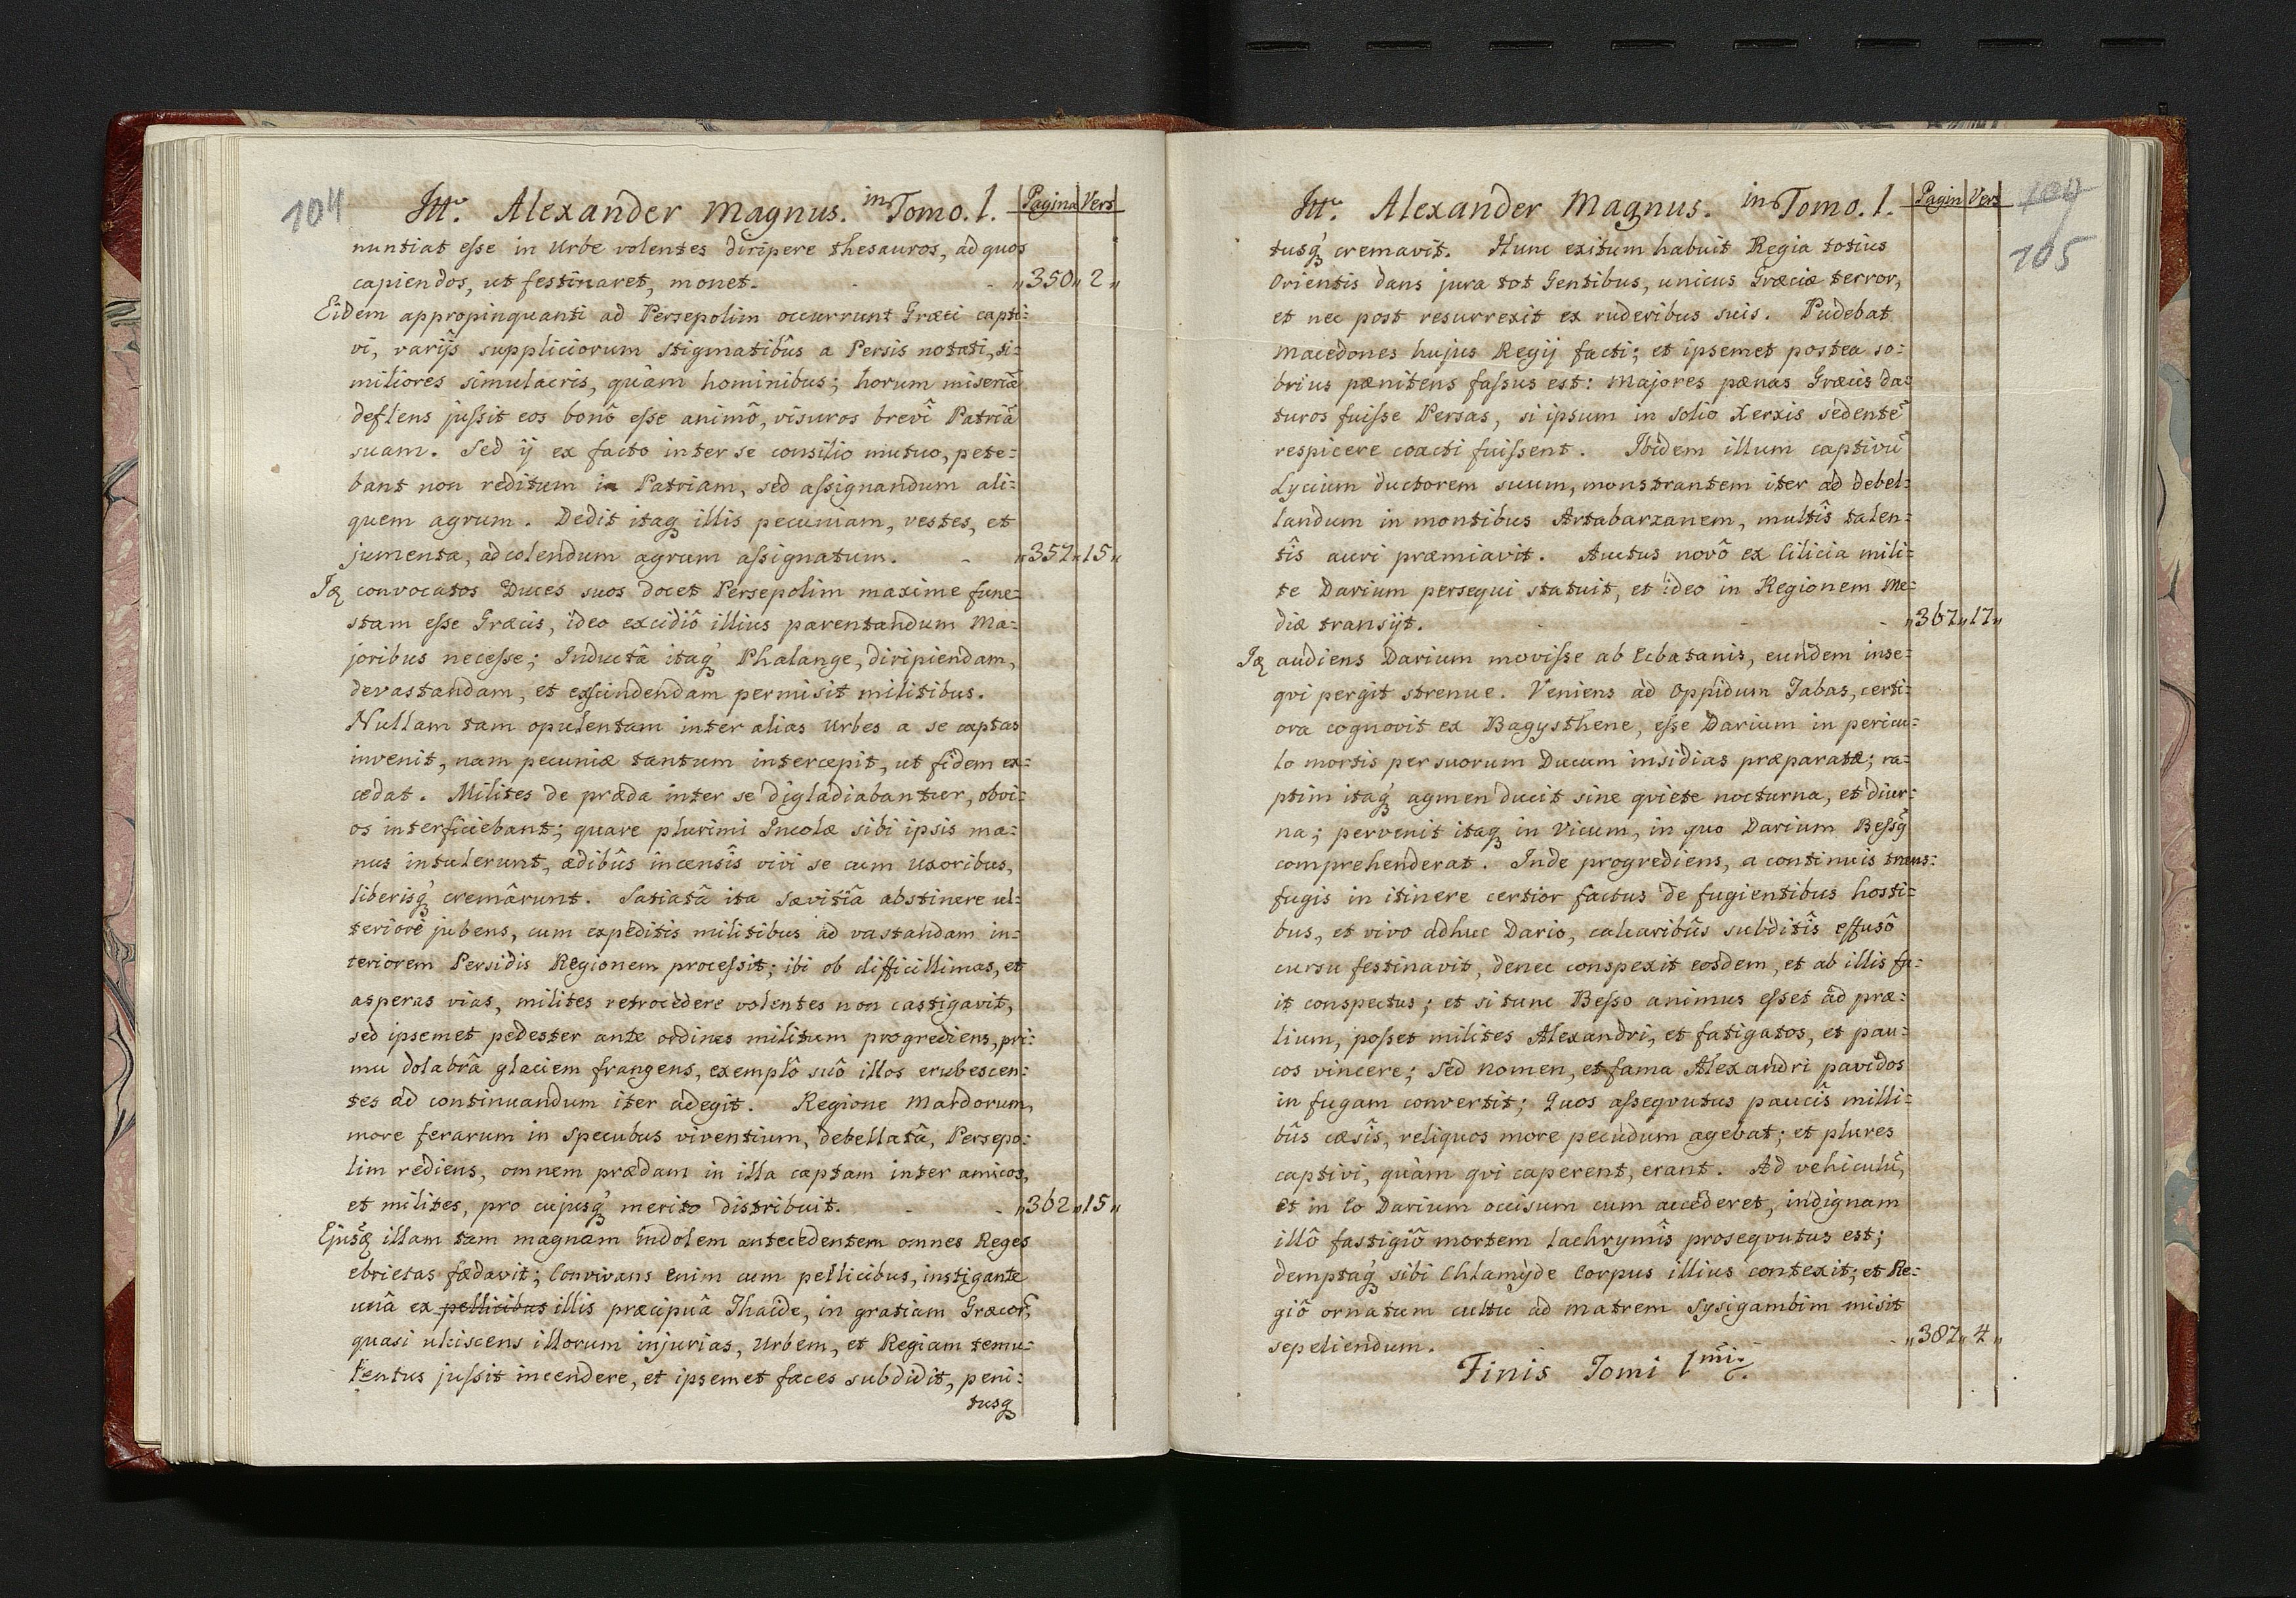 104
Itt. Alexander Magnus. in Tomo. I. Pagina Vers
nuntiat eſse in Urbe volentes diripere thesauros, ad quos
capiendos, ut festinaret, monet. - - „350„2„
Eidem appropinquanti ad Persepolim occurrunt Græci capti:
vi, varijs suppliciorum stigmatibûs a Persis notati, si:
miliores simulacris, quàm hominibus; horum miseriã
deflens juſsit eos bonô eſse animô, visuros brevî Patriã
suam. Sed ij ex facto inter se consilio mutuo, pete:
bant non reditum in Patriam, sed aſsignandum ali:
quem agrum. Dedit itaq́ illis pecuniam, vestes, et
jumenta, ad colendum agrum aſsignatum. - „352„15„
Iꝗ convocatos Duces suos docet Persepolim maxime fune:
stam eſse Græcis, ideo excidiô illius parentandum Ma:
joribus neceſse; Inductâ itaq́ Phalange, diripiendam,
devastandam, et exſcindendam permisit militibus.
Nullam tam opulentam inter alias Urbes a se captas
invenit, nam pecuniæ tantum intercepit, ut fidem ex:
cedat. Milites de præda inter se digladiabantur, obvi:
os interficiebant; quare plurimi Incolæ sibi ipsis ma:
nus intulerunt, ædibûs incensîs vivi se cum uxoribus,
liberisq́ cremârunt. Satiatâ ita sævitiâ abstinere ul:
teriore jubens, cum expeditis militibus ad vastandam in:
teriorem Persidis Regionem proceſsit; ibi ob difficillimas, et
asperas vias, milites retrocedere volentes non castigavit,
sed ipsemet pedester ante ordines militum progrediens, pri:
mu dolabrâ glaciem frangens, exemplô suô illos erubescen:
tes ad continuandum iter adegit. Regione Mardorum,
more ferarum in specubus viventium, debellatâ, Persepo:
lim rediens, omnem prædam in illa captam inter amicos,
et milites, pro cujusq́ merito distribuit. - - „362„15„
Ejusꝗ illam tam magnam Indolem antecedentem omnes Reges
ebrietas fædavit; Convivans enim cum pellicibus, instigante
unâ ex pellicibus illis præcipuâ Thaide, in gratiam Græcor̃,
quasi ulciscens illorum injurias, Urbem, et Regiam temu:
lentus juſsit incendere, et ipsemet faces subdidit, peni:
tusq́
104
105
Itt. Alexander Magnus. in Tomo. I. Pagin Vers
tusq́ cremavit. Hunc exitum habuit Regia totius
Orientis dans jura tot Gentibus, unicus Græciæ terror,
et nec post resurrexit ex ruderibus suis. Pudebat
Macedones hujus Regij facti; et ipsemet postea so:
brius pænitens faſsus est: Majores pænas Græcis da:
turos fuiſse Persas, si ipsum in solio Xerxis sedentẽ
respicere coacti fuiſsent. Ibidem illum captivũ
Lycium ductorem suum, monstrantem iter ad debel:
landum in montibus Artabarzanem, multîs talen:
tîs auri præmiavit. Auctus novô ex Cilicia mili:
te Darium persequi statuit, et ideo in Regionem Me:
diæ transijt. - - - „367„17„
Iꝗ audiens Darium moviſse ab Ecbatanis, eundem inse:
qvi pergit strenue. Veniens ad Oppidum Tabas, certi:
ora cognovit ex Bagysthene, eſse Darium in pericu:
lo mortis per suorum Ducum insidias præparatæ; ra:
ptim itaq́ agmen ducit sine qviete nocturna, et diur:
na; pervenit itaq́ in Vicum, in quo Darium Beſsq̃
comprehenderat. Inde progrediens, a continuis trans:
fugis in itinere certior factus de fugientibus hosti:
bus, et vivo adhuc Dario, calcaribûs subditîs effusô
cursu festinavit, donec conspexit eosdem, et ab illis fu:
it conspectus; et si tunc Beſso animus eſset ad præ:
lium, poſset milites Alexandri, et fatigatos, et pau:
cos vincere; Sed nomen, et fama Alexandri pavidos
in fugam convertit; Quos aſseqvutus paucîs milli:
bûs cæsîs, reliquos more pecudum agebat; et plures
captivi, quàm qvi caperent, erant. Ad vehiculũ,
Et in eo Darium occisum cum accederet, indignam
illô fastigiô mortem lachrymîs proseqvutus est;
demptaq́ sibi Chlamyde Corpus illius contexit; et Re:
giô ornatum cultu ad Matrem Sysigambim misit
sepeliendum. - „382„4„
Finis Tomi 1mi.